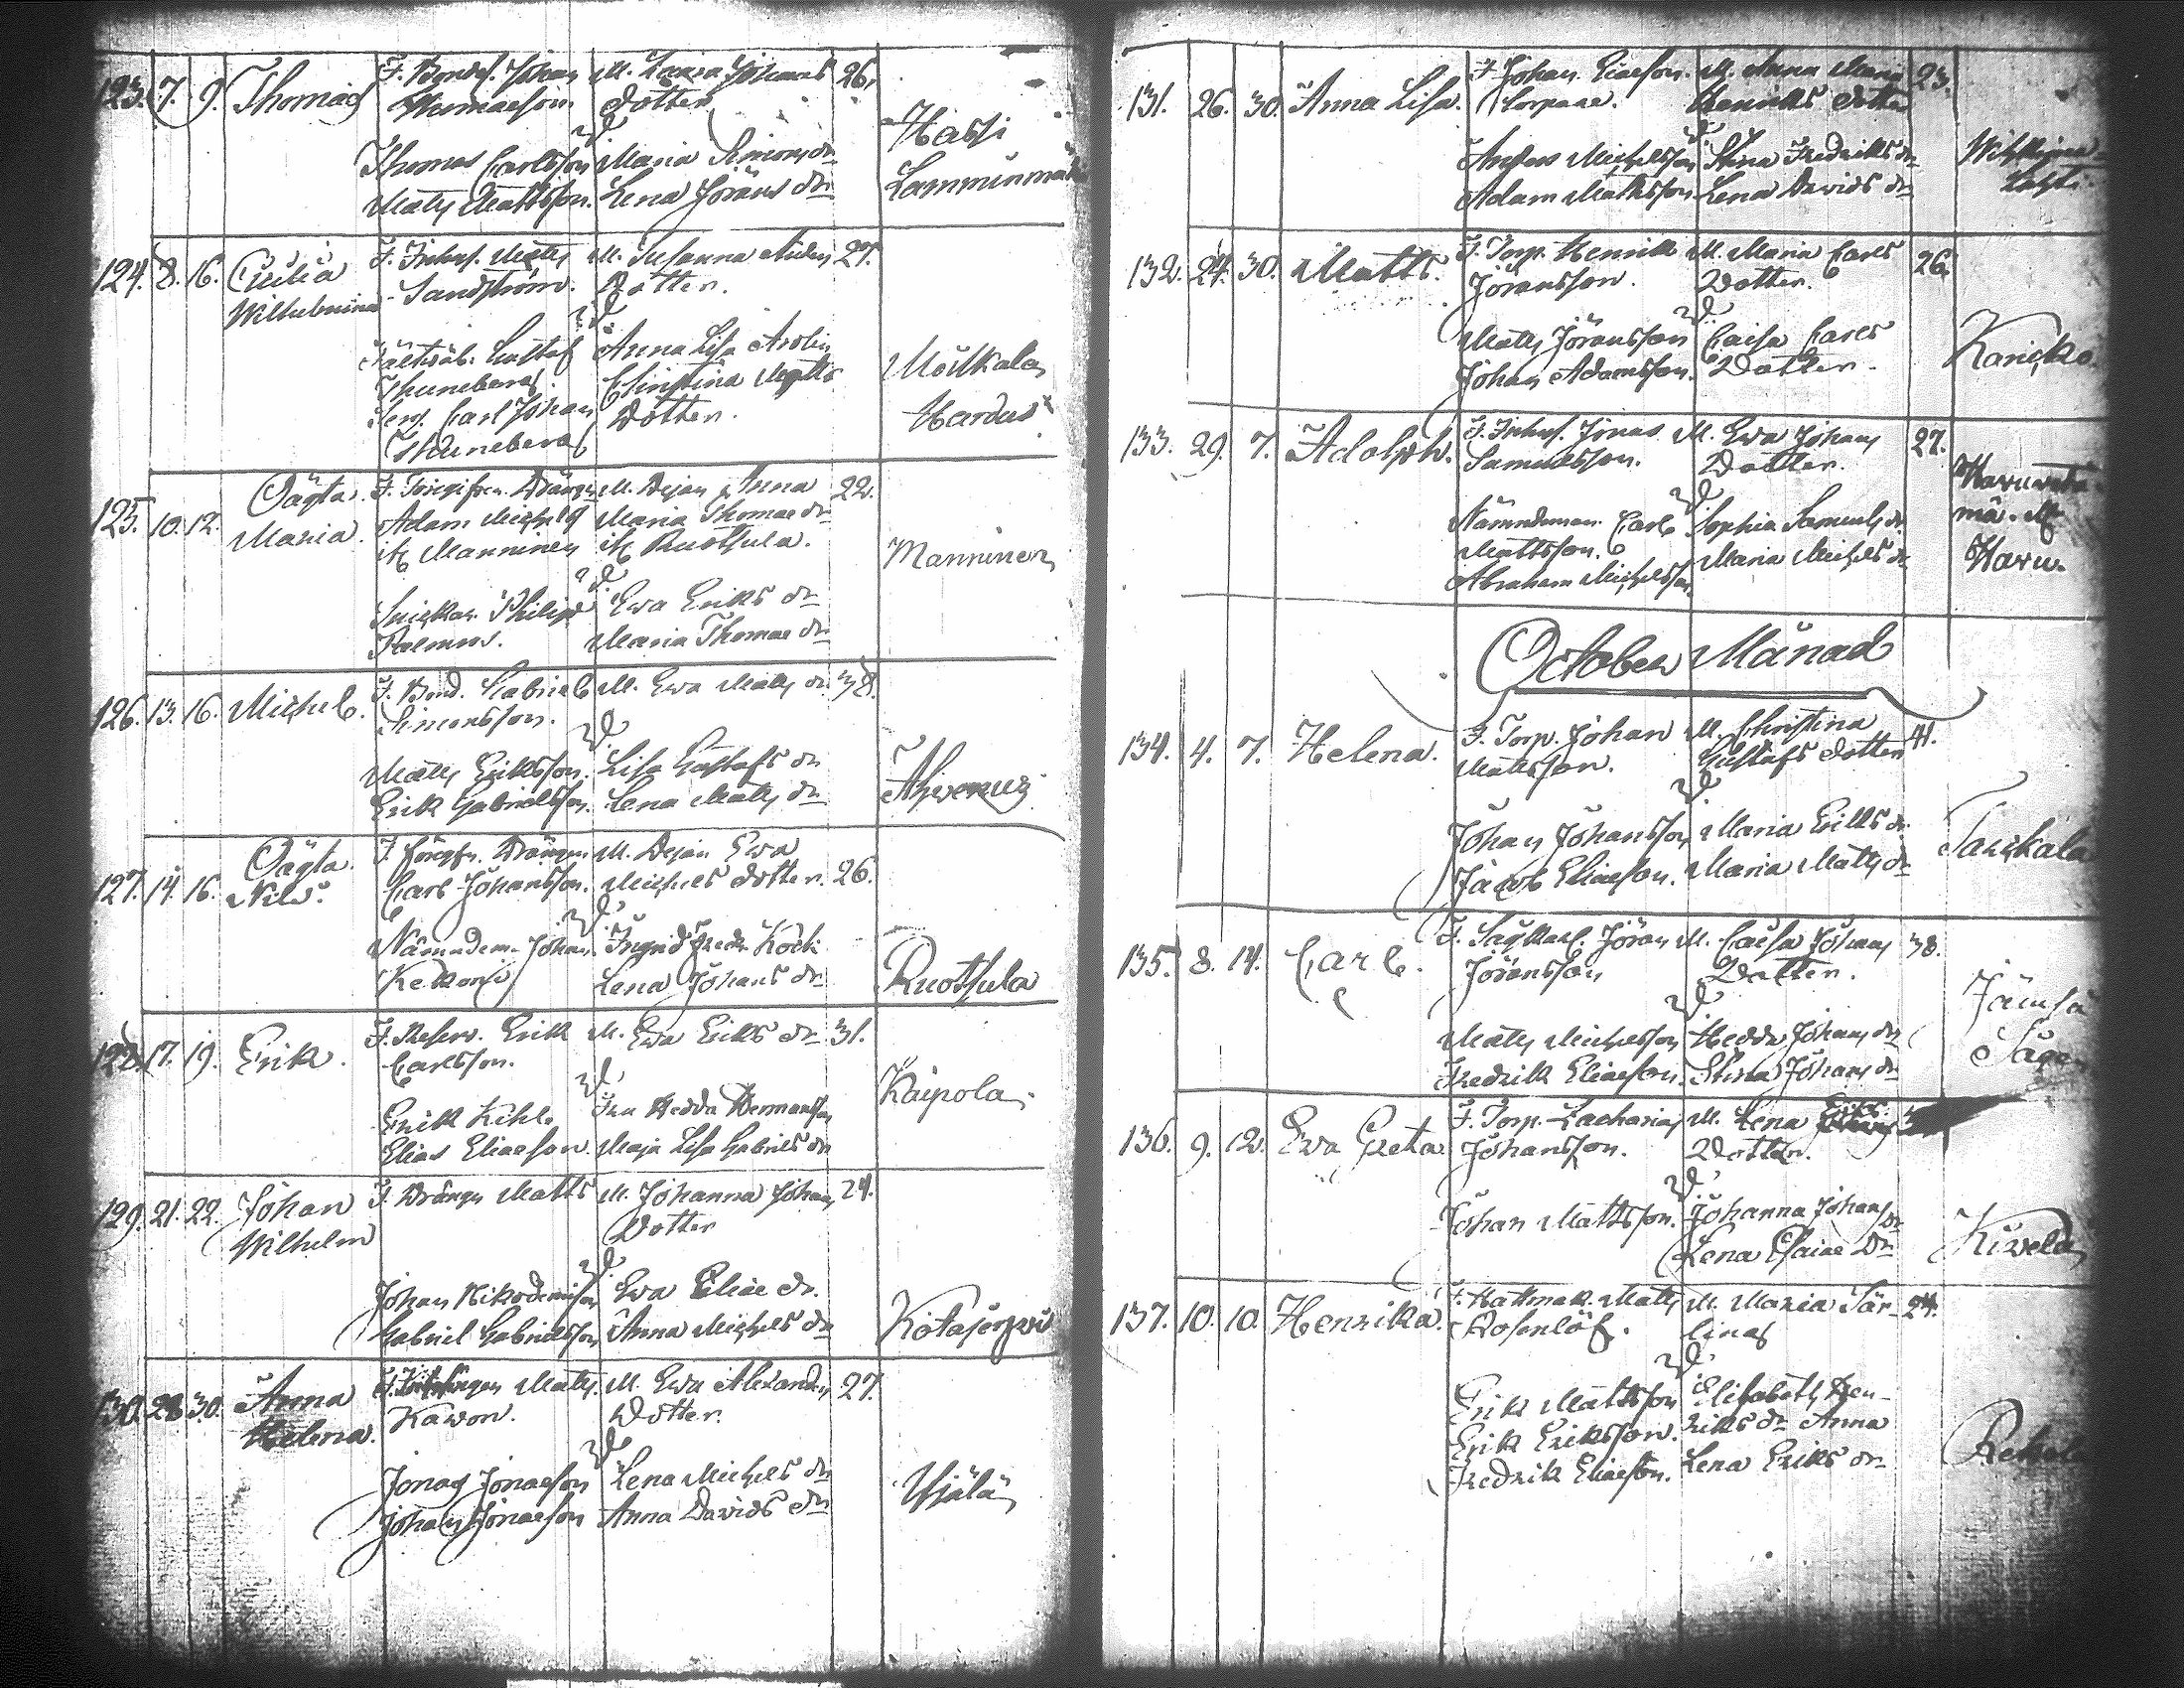 123. 7. 9. Thomas F. Bondes. Johan M. Maria Johans 26.
Thomasson dotter
Thomas Carlsson Maria Simons dr Hassi
Matts Mattsson. Lena Jörans dr Lamminmäki
124. 8. 16. Cecilia F. Inhys. Matts M. Susanna Anders 27.
Wilhelmina Sandström. Dotter.
Fältväb. Gustaf Anna Lisa Arolin
Thuneberg. Christina Matts Mödkala
Serg. Carl Johan Dotter. Hardus
Thuneberg
125. 10. 12. Oägta F. Föregifven Drängen M. Pejan Anna 22.
Maria. Adam Michelss Maria Thomae dr
ifr. Manninen ifr. Ruotsula. Manninen
Snickar. Philip Ewa Eriks dr
Palmros. Maria Thomae dr
126. 13. 16. Michel. F. Bond. Gabriel M. Ewa Matts dr 38.
Simonsson.
Matts Eriksson. Lisa Gustafs dr
Erik Gabrielsson. Lena Matts dr Ahvenus
127. 14. 16. Oägta F. Föregfn. Drängen M. Pejan Ewa
Nils. Carl Johansson. Michels dotter. 26.
Nämndem. Johan Ingrid Fredr. Köck
Kekoni Lena Johans dr Ruotsula
128. 17. 19. Erik. F. Reserv. Erik M. Ewa Eriks dr 31.
Carlsson.
Erik Kihl. Fru Hedda Hermansson Kaipola
Elias Eliaeson. Maja Lisa Gabriels dr
129. 21. 22. Johan F. Drängen Matts M. Johanna Johans 24.
Wilhelm Dotter
Johan Nikodemusson Ewa Eliae dr.
Gabriel Gabrielsson Anna Michels dr Kotajerfvi
130. 28. 30. Anna Matts M. Ewa Alexanders 27.
Helena. Kawon. Dotter.
Jonas Jonaeson Lena Michels dr
Johan Jonaeson Anna Davids dr Wjälä
131. 26. 30. Anna Lisa. F. Johan Eliaeson. M. Anna Maria 23.
Torpare. Henriks dotter
Anders Michelsson Stina Fredriks dr
Adam Mattsson Lena Davids dr Lahti.
132. 24. 30. Matts. F. Torp. Henrik M. Maria Carls 26.
Jöransson. Dotter.
Matts Jöransson Caisa Carls
Johan Adamsson. Dotter. Kanckko.
133. 29. 7. Adolph. F. Inhys. Jonas M. Ewa Johans 27.
Samuelsson. Dotter.
Nämndeman Carl Sophia Samuels dr
Mattsson. Maria Michels dr
Abraham Michelsson. Haru.
October Månad
134. 4. 7. Helena. F. Torp. Johan M. Christina
Mattsson. Gustafs dotter 41.
Johan Johansson Maria Eriks dr.
Jacob Eliaeson. Maria Matts dr
135. 8. 14. Carl. F. Sågkarl. Jöran M. Caisa Johans 38.
Jöransson Dotter.
Matts Michelsson Hedda Johans dr Jämsä
Fredrik Eliaeson. Stina Johans dr Såge
136. 9. 12. Ewa Greta F. Torp. Zacharias M. Lena Eriks
Johansson. Dotter.
Johan Mattsson. Johanna Johans dr
Lena Esaiae Dr Kiwelä
137. 10. 10. Henrika. F. Hattmak. Matts M. Maria Sär- 24.
Rosenlöf. linas
Erik Mattsson Elisabeth Hen-
Erik Eriksson. riks dr Anna
Fredrik Eliaeson. Lena Eriks dr